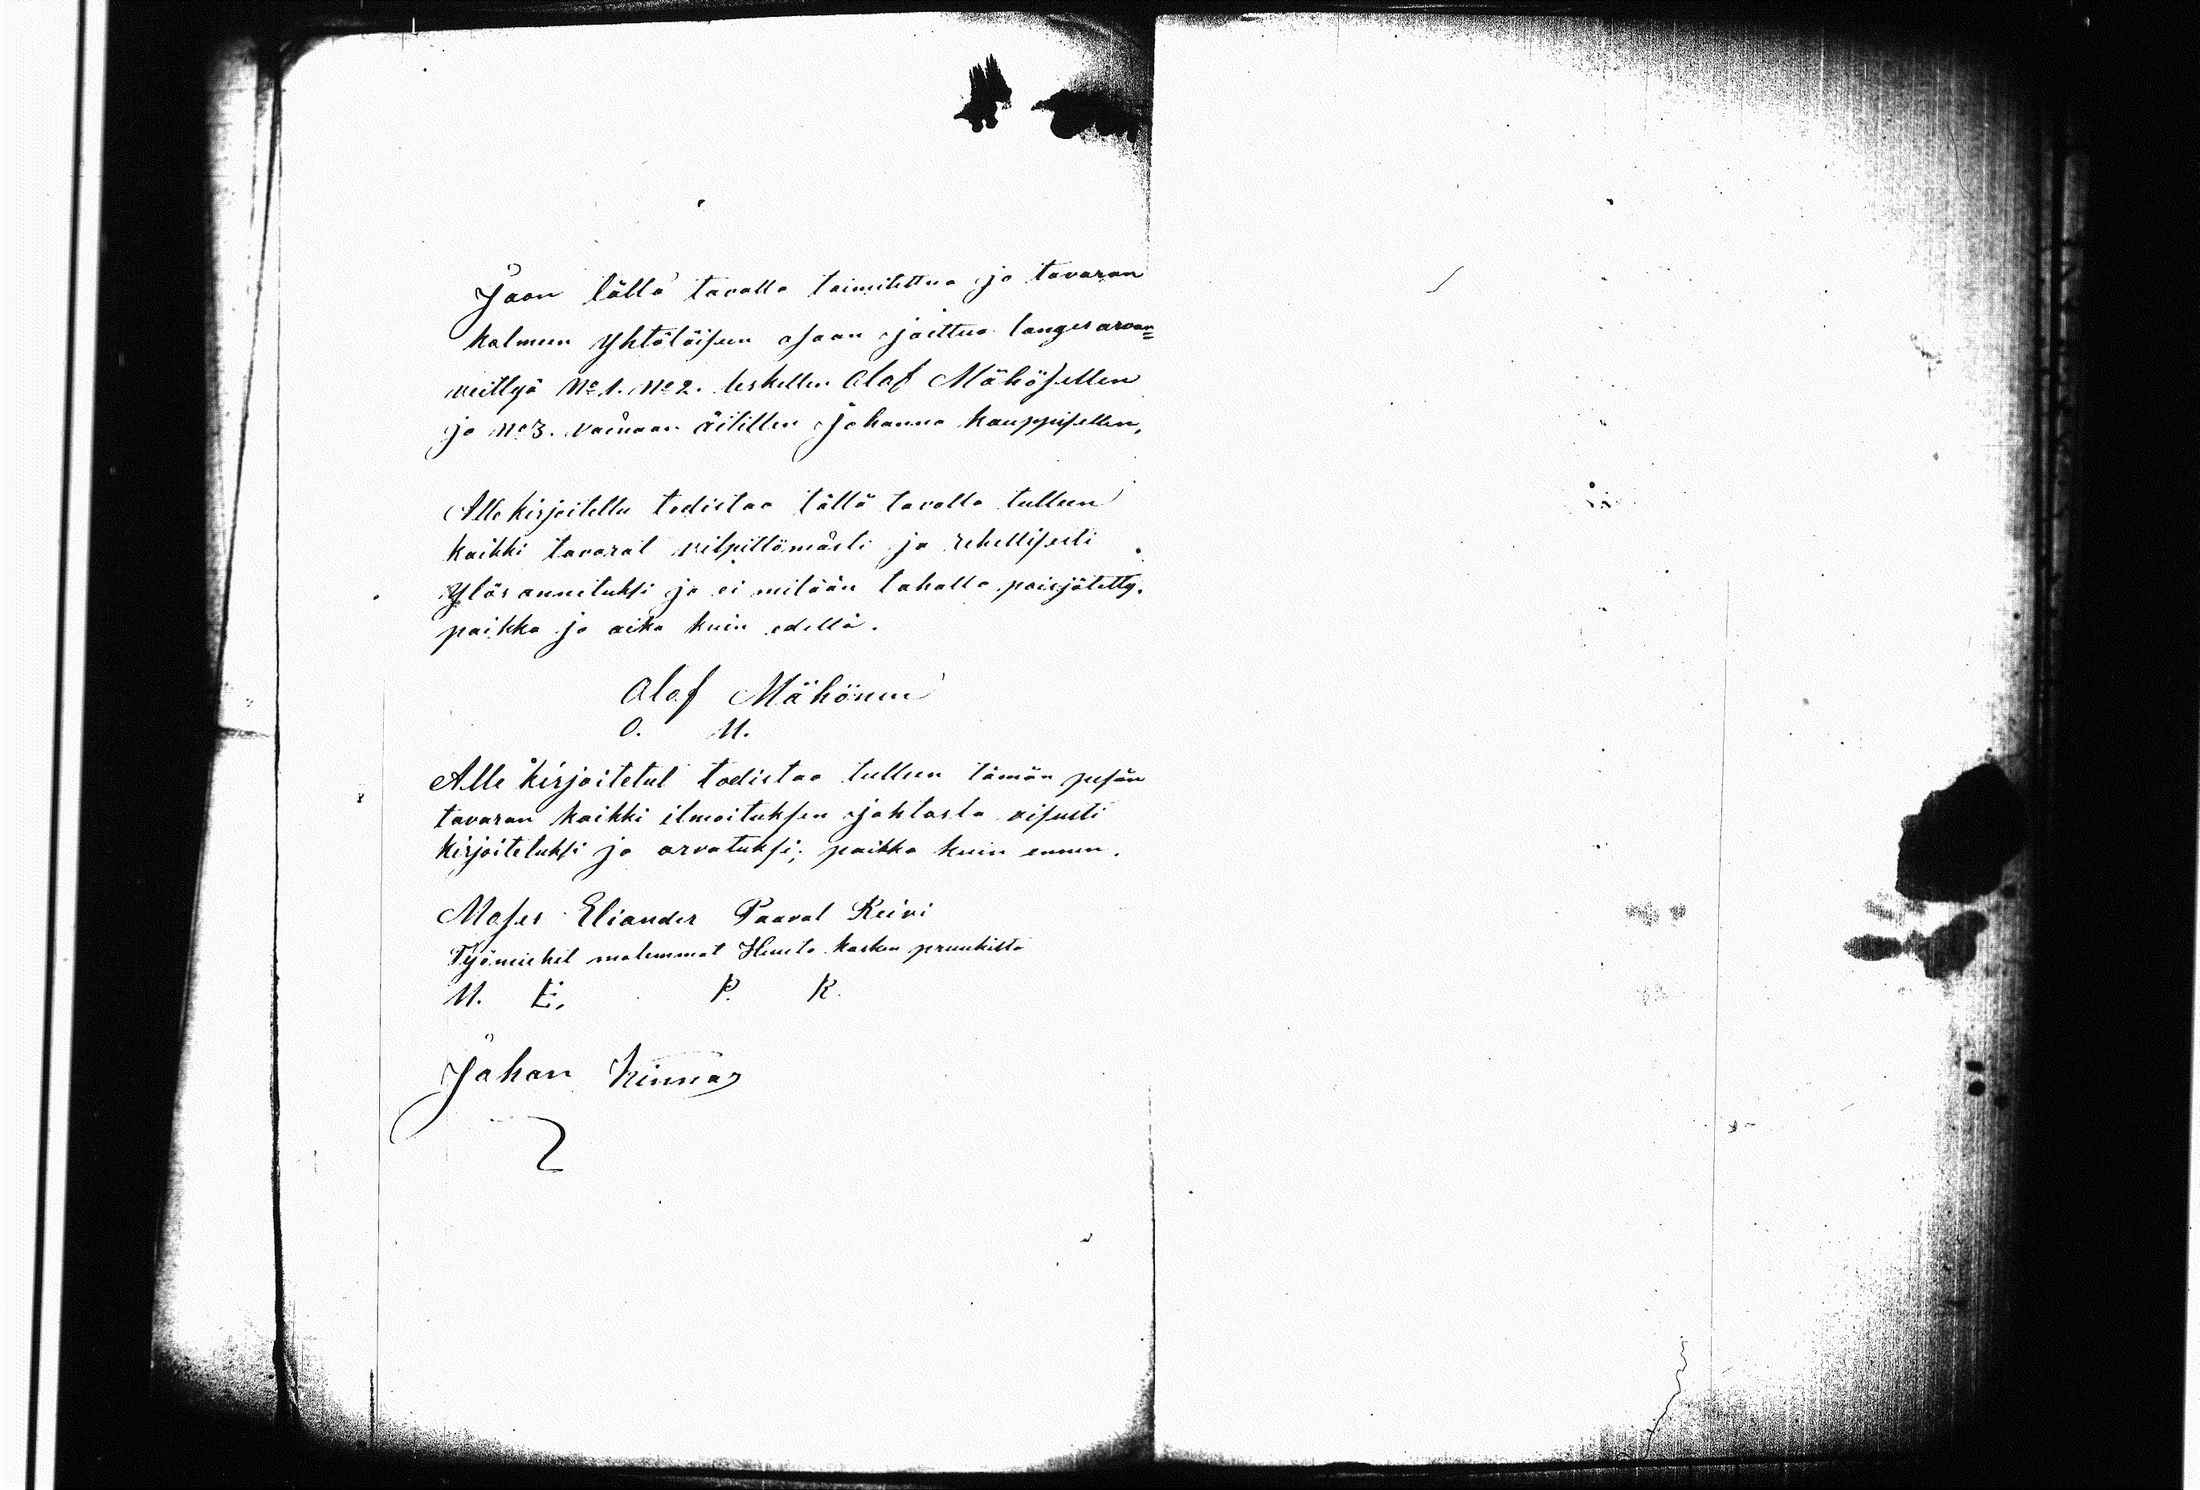 Jaon tällä tavalla toimitettua ja tavaran
kolmeen yhtöläiseen osaan jaettua langes arvan=
veittyä No 1. No 2. leskellen Olof Mähösellen
ja No 3. vainaan äitillen Johanna Kauppisellen,
Alle kirjoitettu todistaa tällä tavalla tulleen
kaikki tavarat vilpittömästi ja rehellisesti
ylös annetuksi ja ei mitään tahalla poisjätetty.
paikka ja aika kuin edellä.
Olof Mähönen
O. M.
Alle kirjoitetut todistaa tulleen tämän pesän
tavaran kaikki ilmoituksen johtasta oisusti
kirjoitetuksi ja arvatuksi; paikka kuin ennen.
Moses Eliander Paaval Keivi
Työmiehet molemmat kosken pruukista
M. E. P. K.
Johan Kinnar